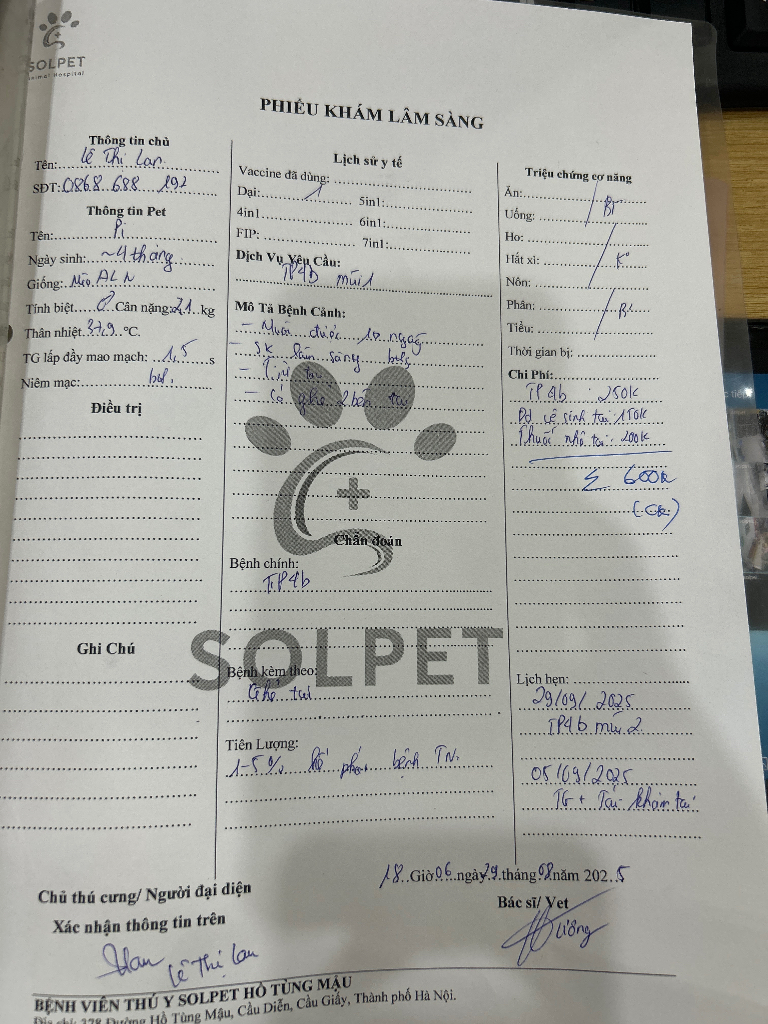 SOLPET
Animal Hospital
PHIẾU KHÁM LÂM SÀNG
Thông tin chủ
Tên: Lê Thị Lan
SĐT: 0868 688 192
Thông tin Pet
Tên: Pi
Ngày sinh: ~4 tháng
Giống: Mèo ALN
Tính biệt ♂ Cân nặng: 2,1 kg
Thân nhiệt 37,9 °C.
TG lấp đầy mao mạch: 1,5 s
Niêm mạc: bt.
Điều trị
Ghi Chú
Lịch sử y tế
Vaccine đã dùng:
Dại: 1 5in1:
4in1 6in1:
FIP: 7in1:
Dịch Vụ Yêu Cầu:
TP4b mũi 1
Mô Tả Bệnh Cảnh:
- Nuôi được 10 ngày
- SK lâm sàng
-
- Có ghẻ 2 bên tai
Chẩn đoán
Bệnh chính:
TP4b
SOLPET
Bệnh kèm theo:
Ghẻ tai
Tiên Lượng:
1-5% bệnh TN.
Triệu chứng cơ năng
Ăn:
Uống: Bt
Ho:
Hắt xì: K°
Nôn:
Phân: Bt
Tiểu:
Thời gian bị:
Chi Phí:
TP4b 250k
vệ sinh tai 150k
Thuốc nhỏ tai: 200k
Σ 600k
(CK)
Lịch hẹn:
29/09/2025
TP4b mũi 2
05/09/2025
TG + Tái khám tai
18 Giờ 06 ngày 29 tháng 08 năm 2025
Chủ thú cưng/ Người đại diện
Xác nhận thông tin trên
Lan
Lê Thị Lan
Bác sĩ/ Vet
BỆNH VIÊN THÚ Y SOLPET HỒ TÙNG MẬU
Địa chỉ: 378 Đường Hồ Tùng Mậu, Cầu Diễn, Cầu Giấy, Thành phố Hà Nội.